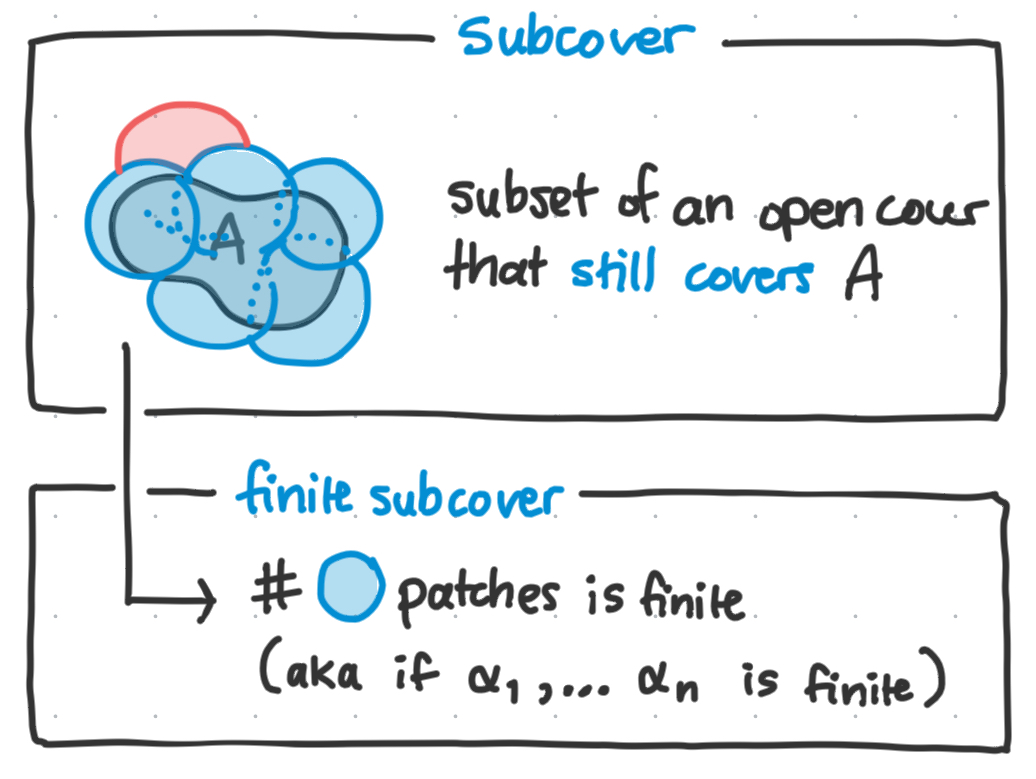 Subcover
A
subset of an open cover
that still covers A
finite subcover
# patches is finite
(aka if α₁,... αₙ is finite)